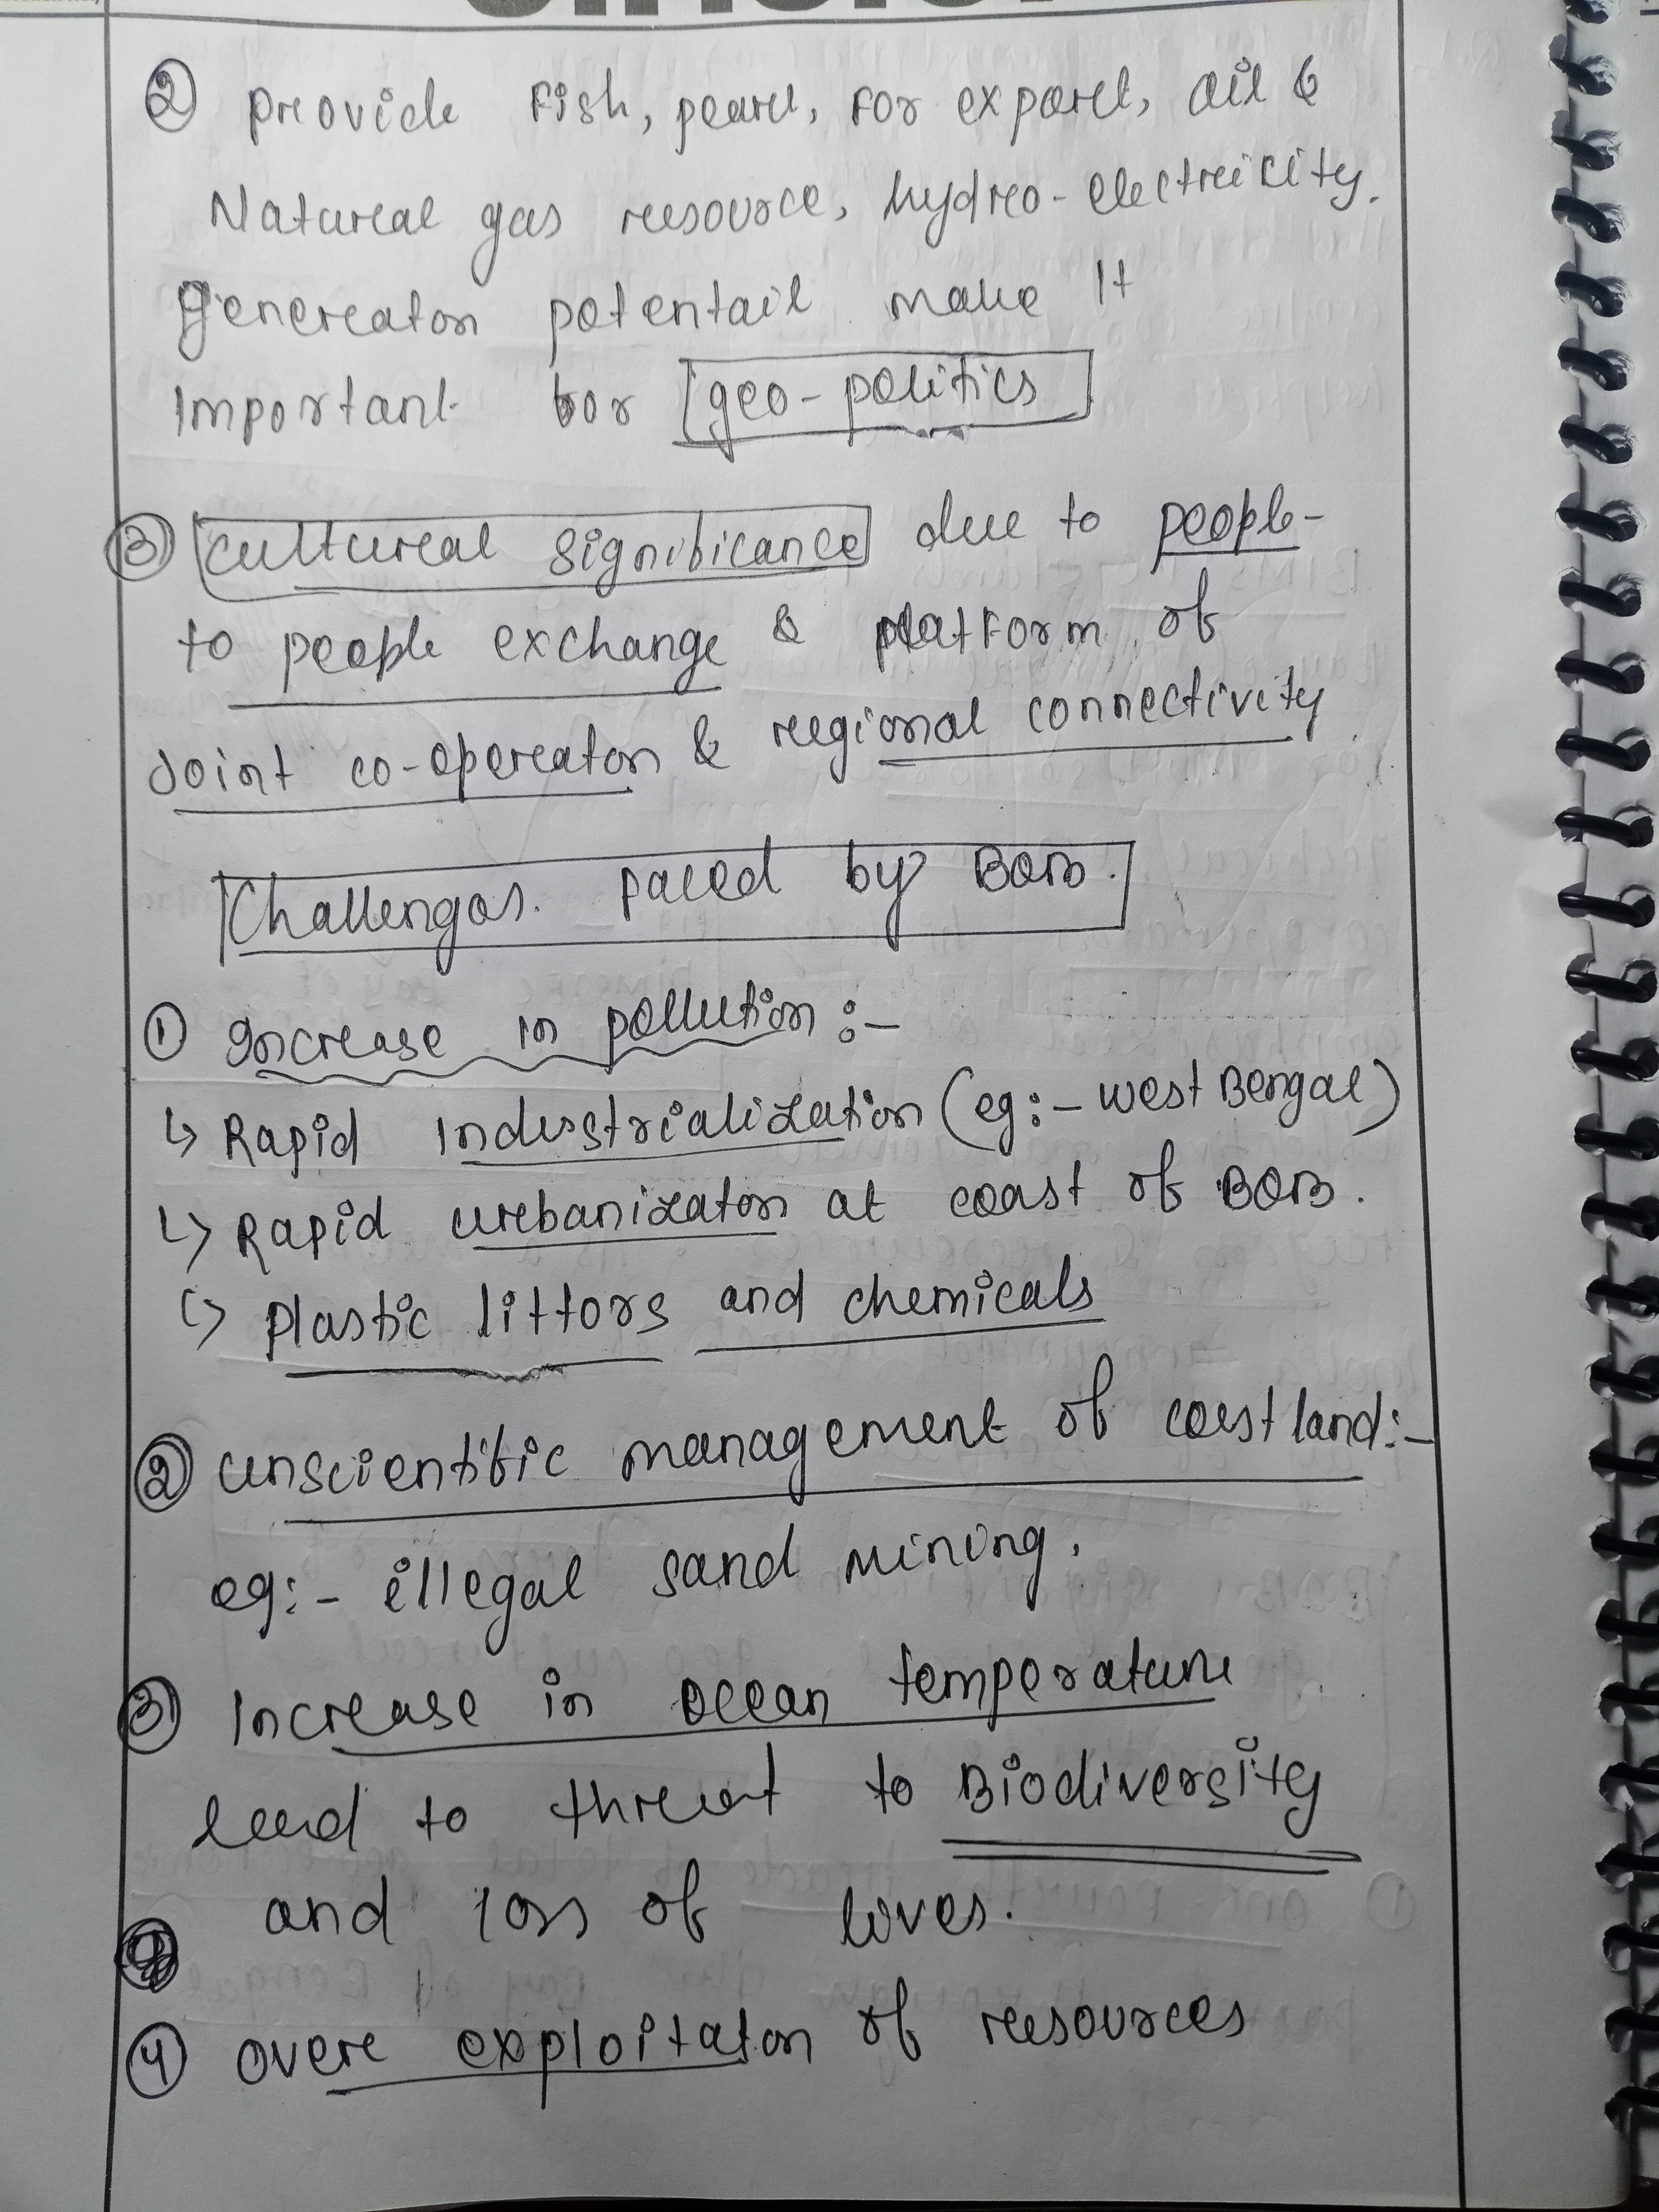 ② provide fish, pearl, for export, oil &
Natural gas resource, hydro-electricity.
generaton potentail make It
Important for geo-politics
③ cultural significance due to people-
to people exchange & platform of
Joint co-operaton & regional connectivity
Challenges faced by BOB.
① Increase in pollution :-
↳ Rapid Industrialization (eg:- west Bengal)
↳ Rapid urbanizaton at coast of BOB.
↳ plastic littors and chemicals
② unscientific management of coastland:-
eg:- illegal sand mining.
③ Increase in ocean temperature
lead to threat to Biodiversity
and loss of lives.
④ over exploitaton of resources